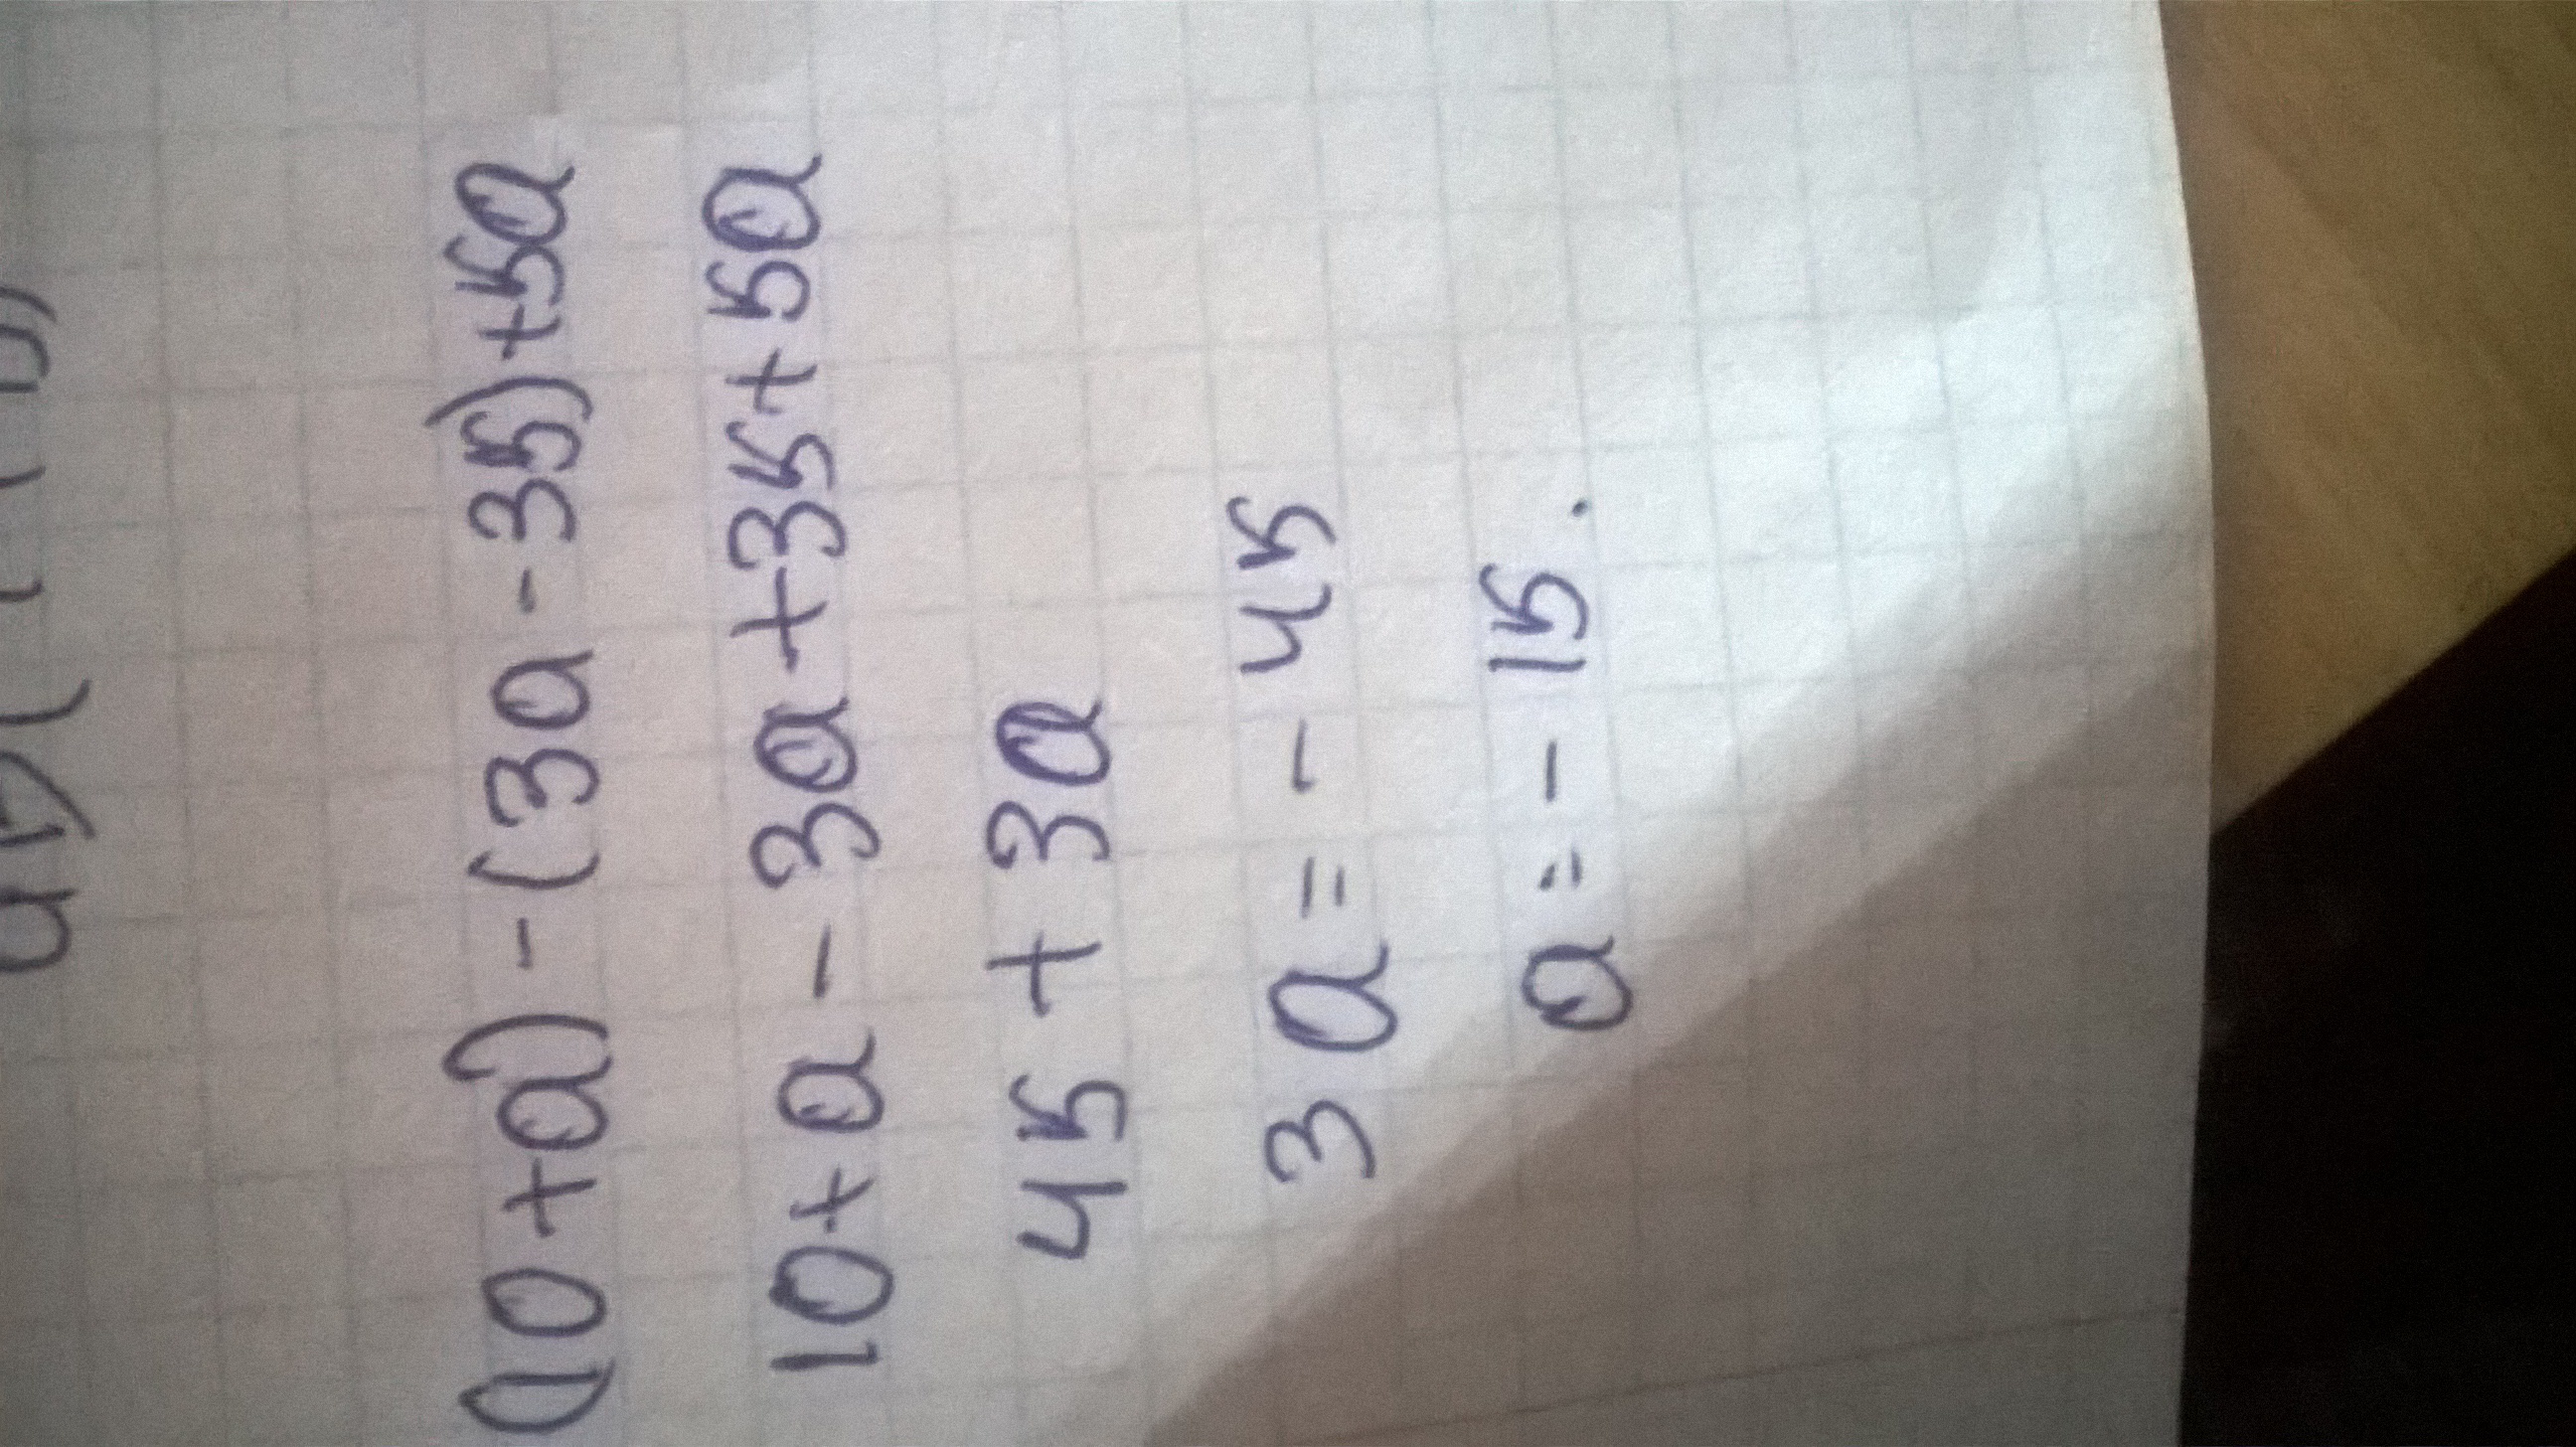 (10+a)-(3a-35)+5a
10+a-3a+35+5a
45+3a
3a=-45
a=-15.